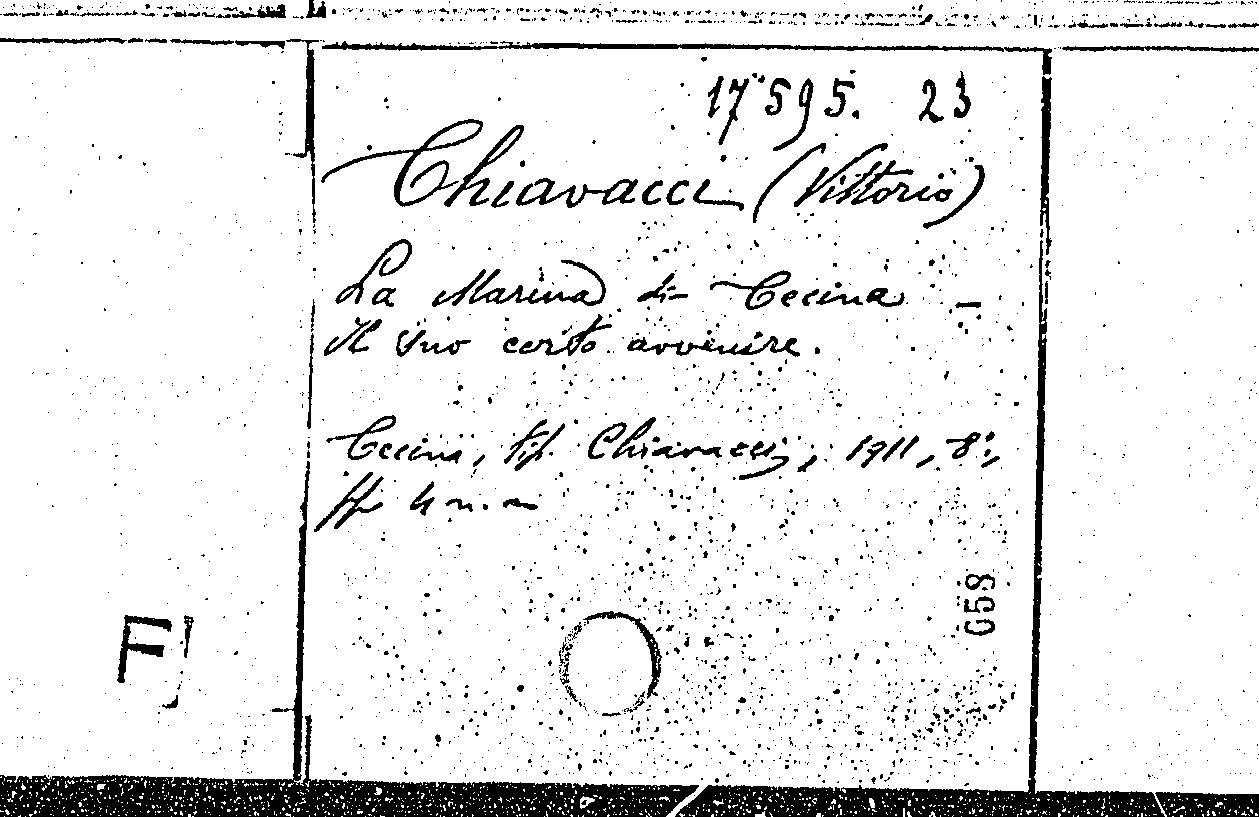 17595. 23
Chiavacci (Vittorio)
La Marina di Cecina -
Il suo certo avvenire.
Cecina, tip. Chiavacci, 1911, 8°,
pp 4 n. n
058
F